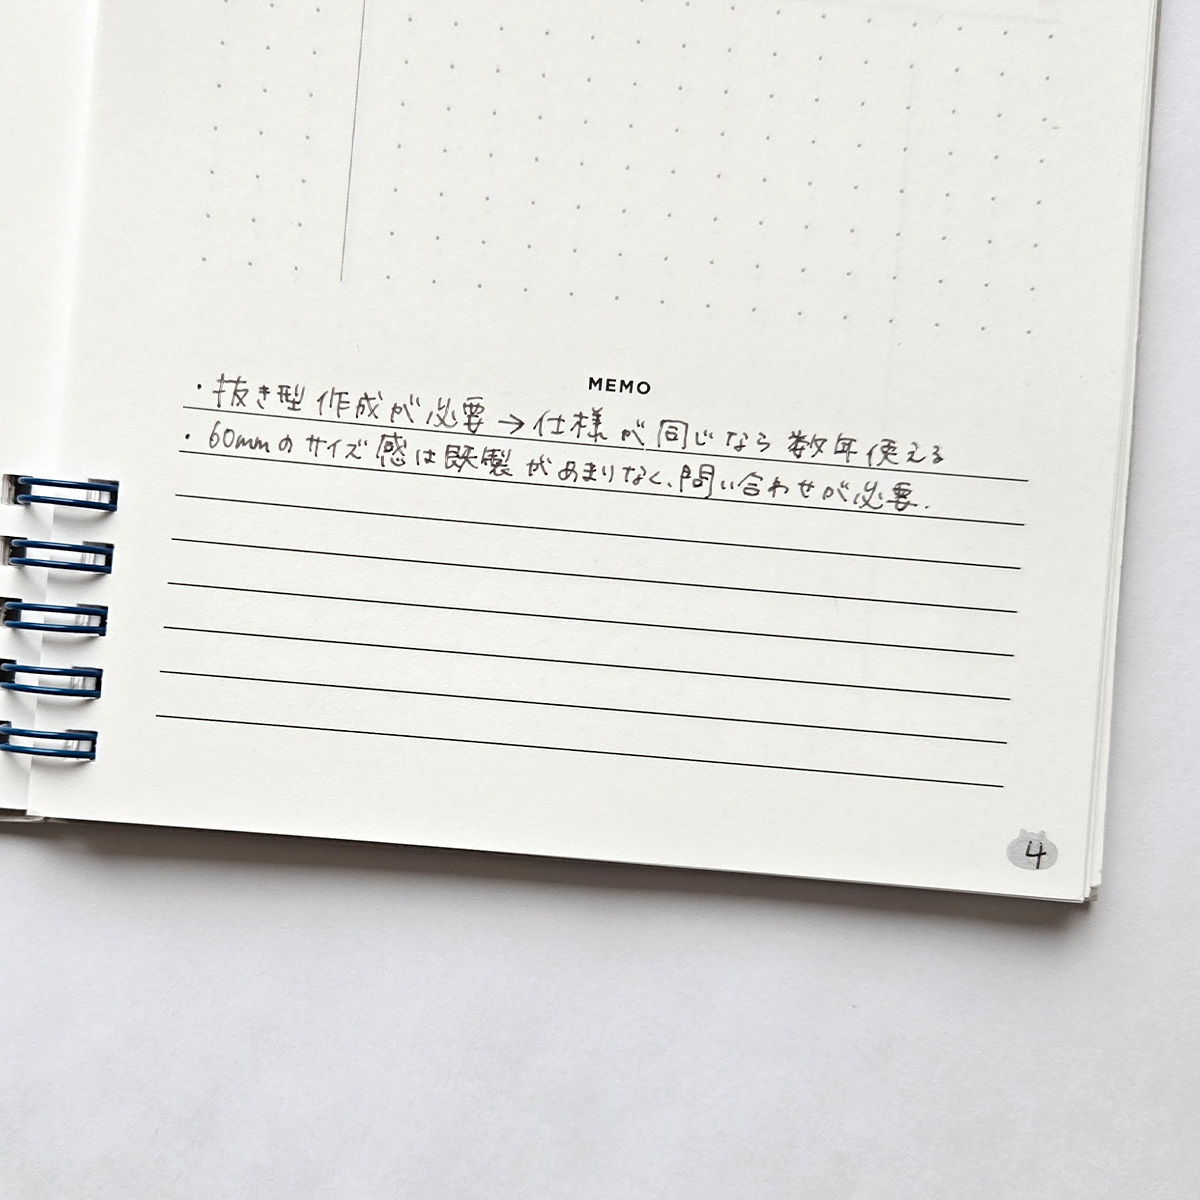 MEMO
・抜き型作成が必要→仕様が同じなら数年使える
・60mmのサイズ感は既製があまりなく、問い合わせが必要.
4